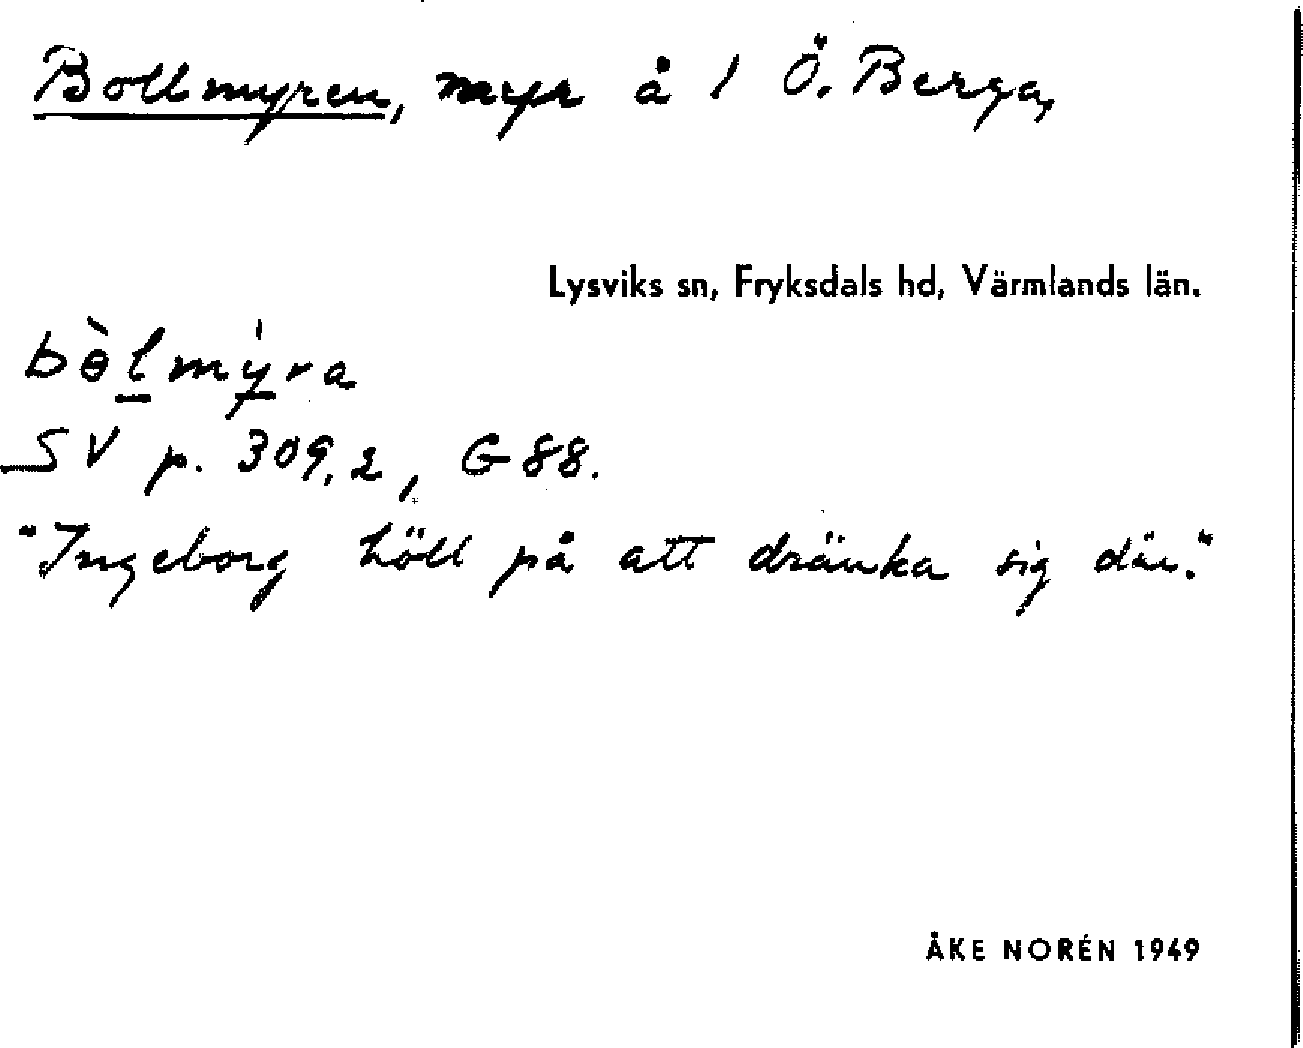 Bollmyren, myr å 1 Ö. Berga,
Lysviks sn, Fryksdals hd, Värmlands län.
bɵ̀lmy̍ra
SV p. 309,2, G 88.
"Ingeborg höll på att dränka sig där."
ÅKE NORÉN 1949